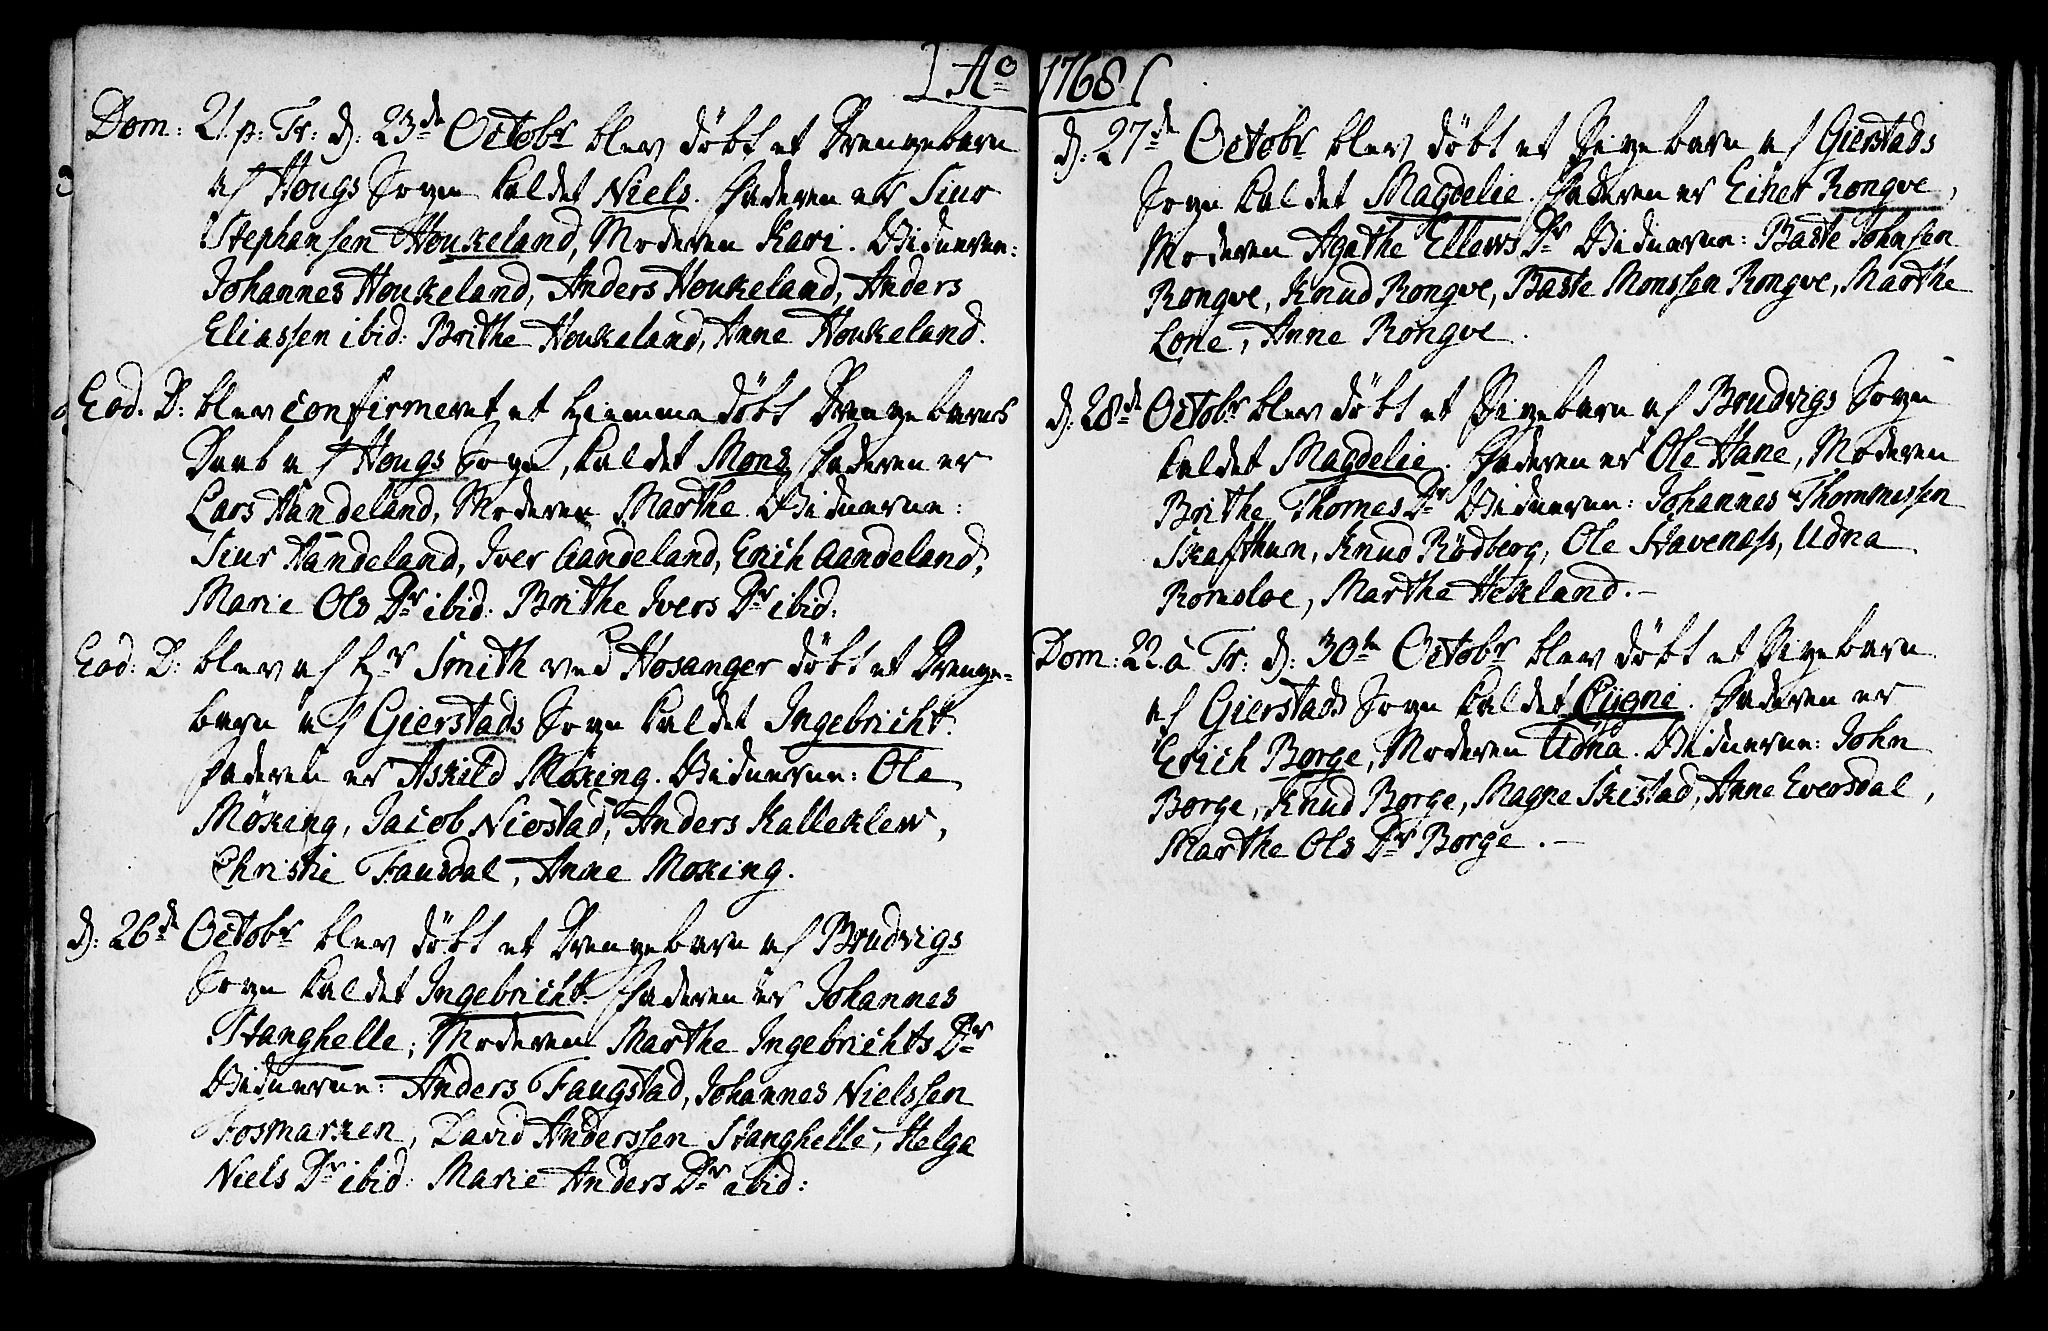 ] Ao 1768 [
Dom: 21. p: Tr: d: 23de Octobr blev döbt et Drengebarn
af Hougs Sogn kaldet Niels. Faderen er Siur
Stephansen Houkeland, Moderen Kari. Vidnerne:
Johannes Houkeland, Anders Houkeland, Anders
Eliassen ibid: Brithe Houkeland, Anne Houkeland.
Eod. D: blev confirmeret et hiemme döbt Drengebarns
Daab af Hougs Sogn, kaldet Mons. Faderen er
Lars Handeland, Moderen Marthe. Vidnerne:
Siur Handeland, Iver Aandeland, Erich Aandeland,
Marie Ols Dr ibid: Brithe Ivers Dr ibid:
Eod: D: blev af Hr Smith ved Hosanger döbt et Drenge-
barn af Gierstads Sogn kaldet Ingebricht.
Faderen er Askild Möxing. Vidnerne: Ole
Möxing, Jacob Niostad, Anders Kalleklew,
Christie Fausdal, Anne Moxing.
d: 26de Octobr blev döbt et Drengebarn af Brudvigs
Sogn kaldet Ingebricht. Faderen er Johannes
Stanghelle; Moderen Marthe Ingebrichts Dr
Vidnerne: Anders Faugstad, Johannes Nielssen
Fosmarken, David Anderssen Stanghelle, Helga
Niels Dr ibid: Marie Anders Dr ibid:
d: 27de Octobr blev döbt et Pigebarn af Gierstads
Sogn kaldet Magdelie. Faderen er Einer Rongve,
Moderen Agathe Ellews Dr Vidnerne: Baste Johnsen
Rongve, Knud Rongve, Baste Monssen Rongve, Marthe
Lone, Anne Rongve.
d: 28de Octobr blev döbt et Pigebarn af Brudvigs Sogn
kaldet Magdelie. Faderen er Ole Hane, Moderen
Brithe Thomes Dr Vidnerne: Johannes Thommessen
Skafthun, Knud Rödberg, Ole Havenass, Udna
Romsloe, Marthe Hekland.-
Dom: 22 a Tr: d: 30te Octobr blev döbt et Pigebarn
af Gierstads Sogn kaldet Qvigni. Faderen er
Erich Borge, Moderen Udna. Vidnerne: John
Borge, Knud Borge, Magne Skistad, Anne Eversdal,
Marthe Ols Dr Borge.-